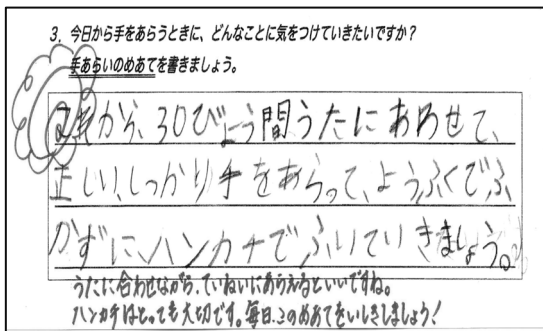 3. 今日から手をあらうときに、どんなことに気をつけていきたいですか?
手あらいのめあてを書きましょう。
これから、30びょう間うたにあわせて、
正しい、しっかり手をあらって、ようふくでふ
かずに、ハンカチでふいていきましょう。
うたに合わせながら、ていねいにあらえるといいですね。
ハンカチはとっても大切です。毎日、このめあてをいしきしましょう!